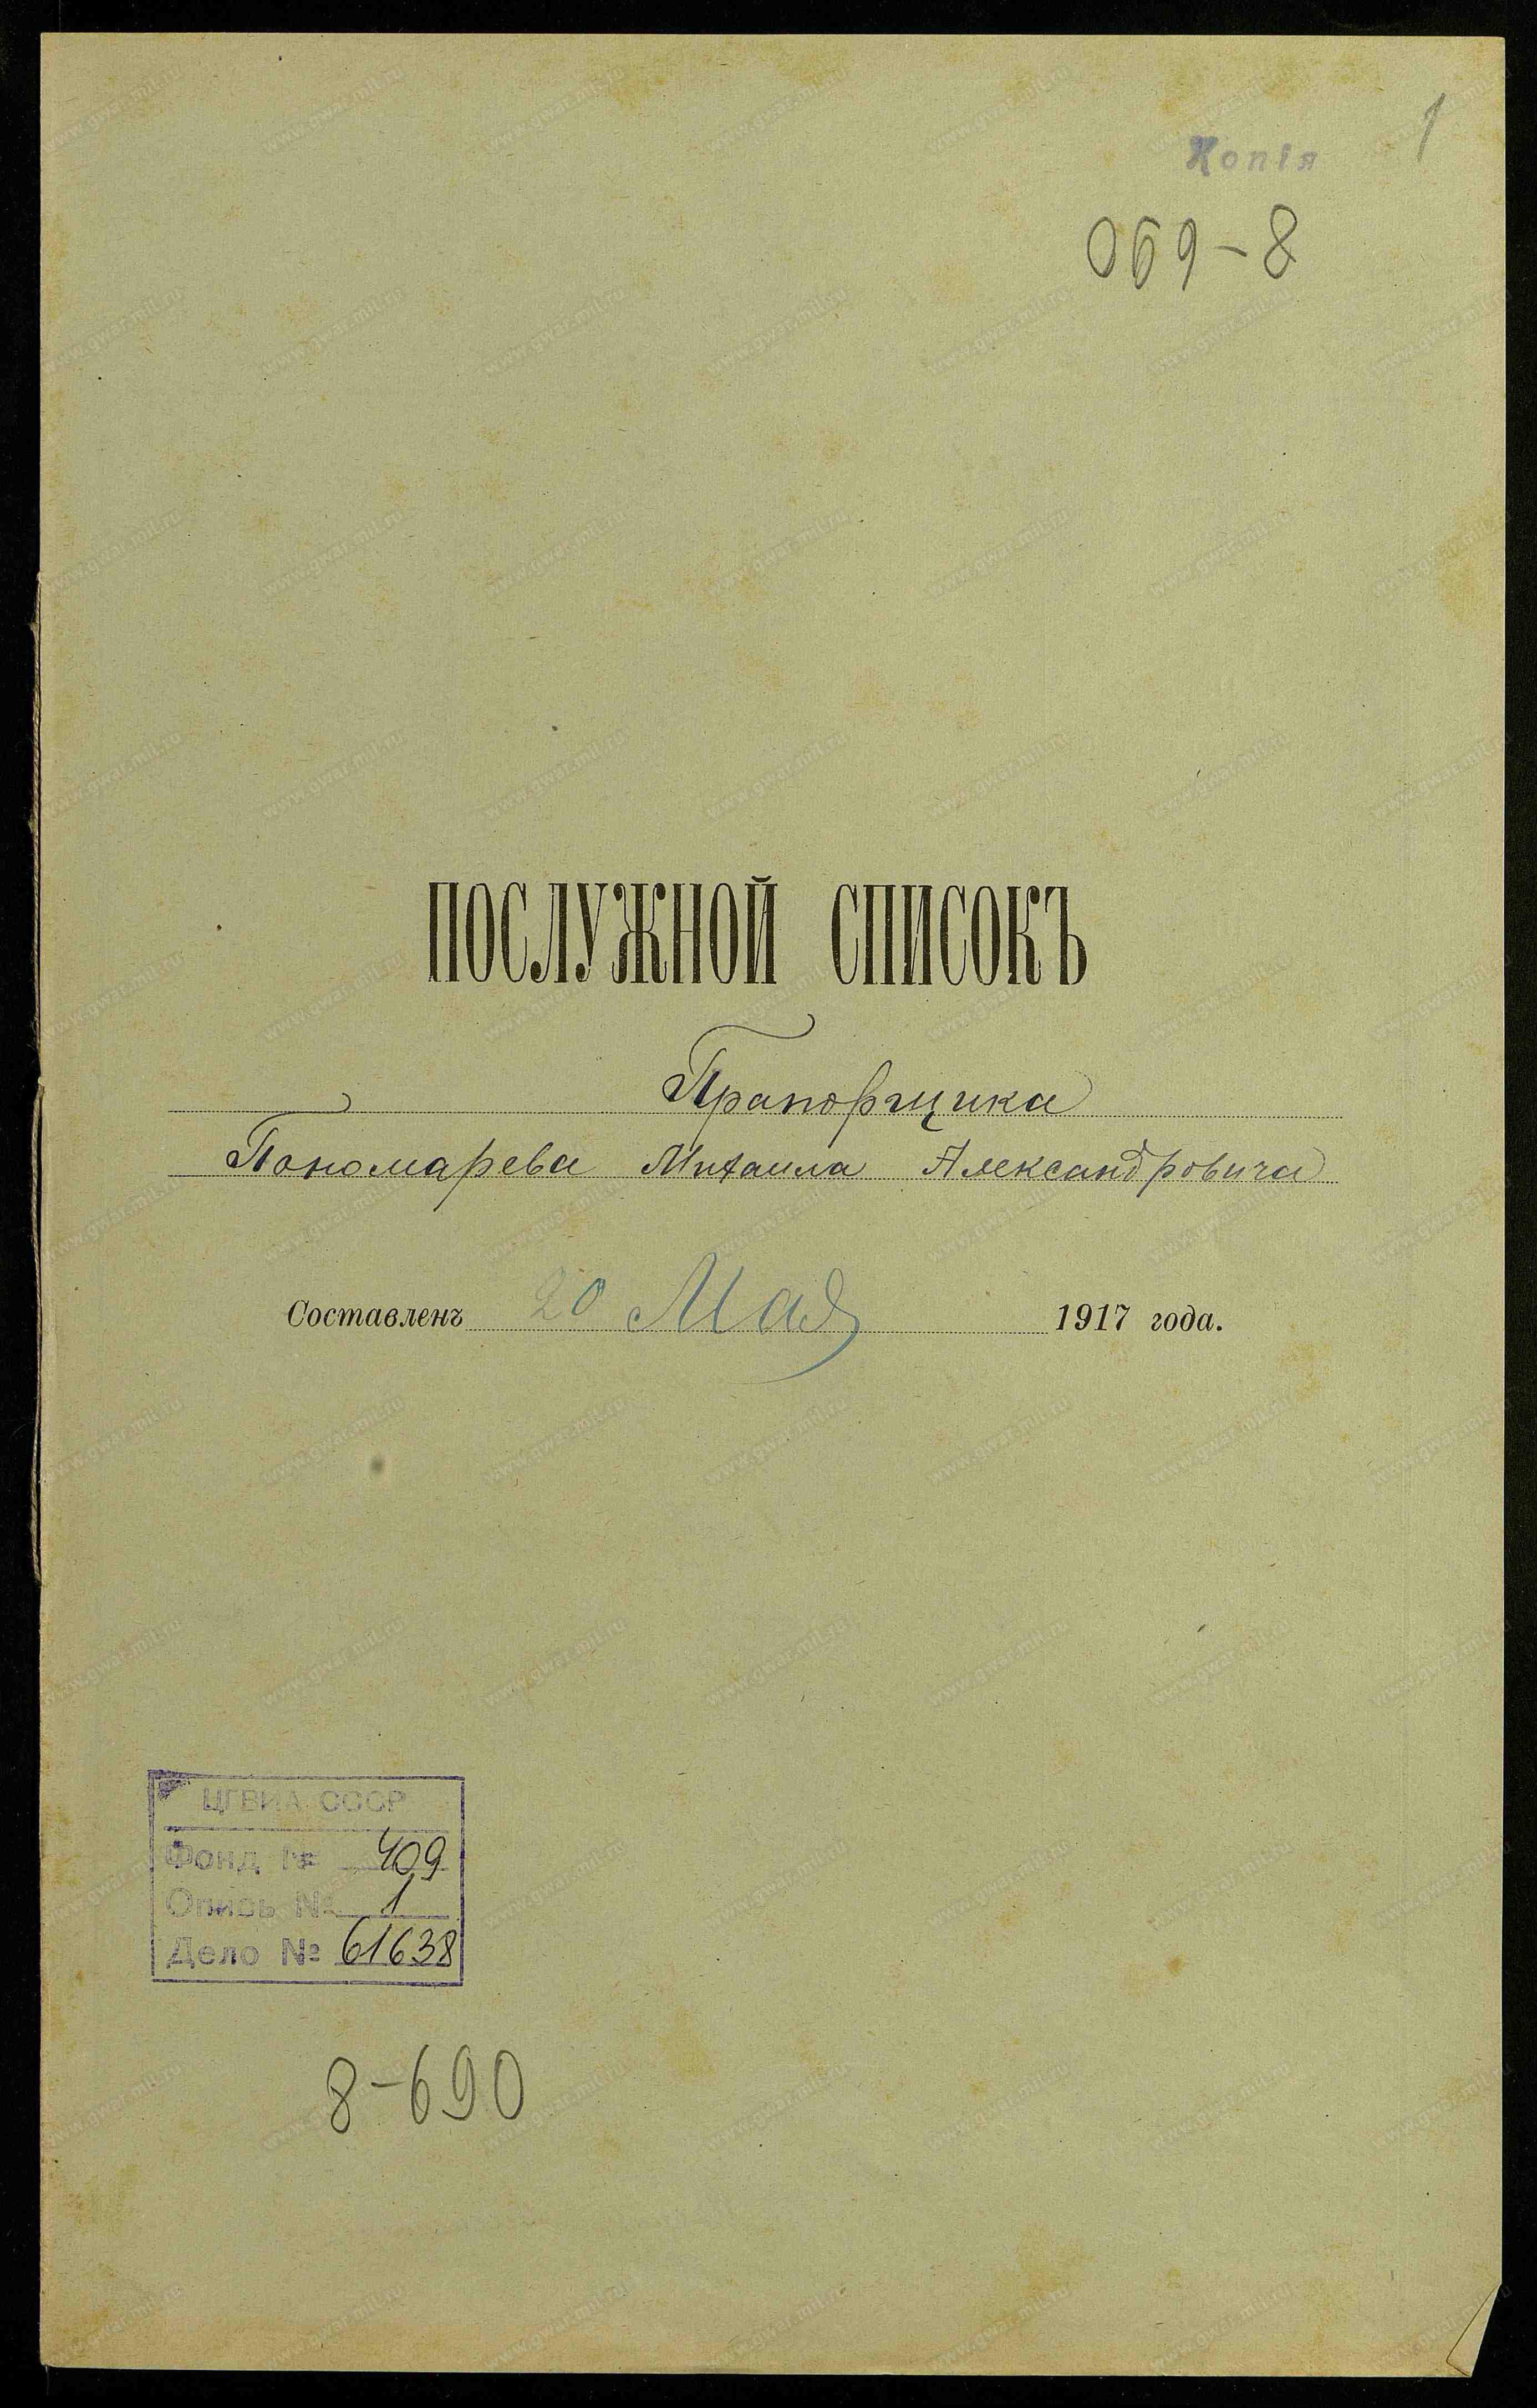 1
Копія
069-8
ПОСЛУЖНОЙ СПИСОКЪ
Прапорщика
Пономарева Михаила Александровича
Составленъ 20 Мая 1917 года.
ЦГВИА СССР
Фонд № 409
Опись № 1
Дело № 61638
8-690